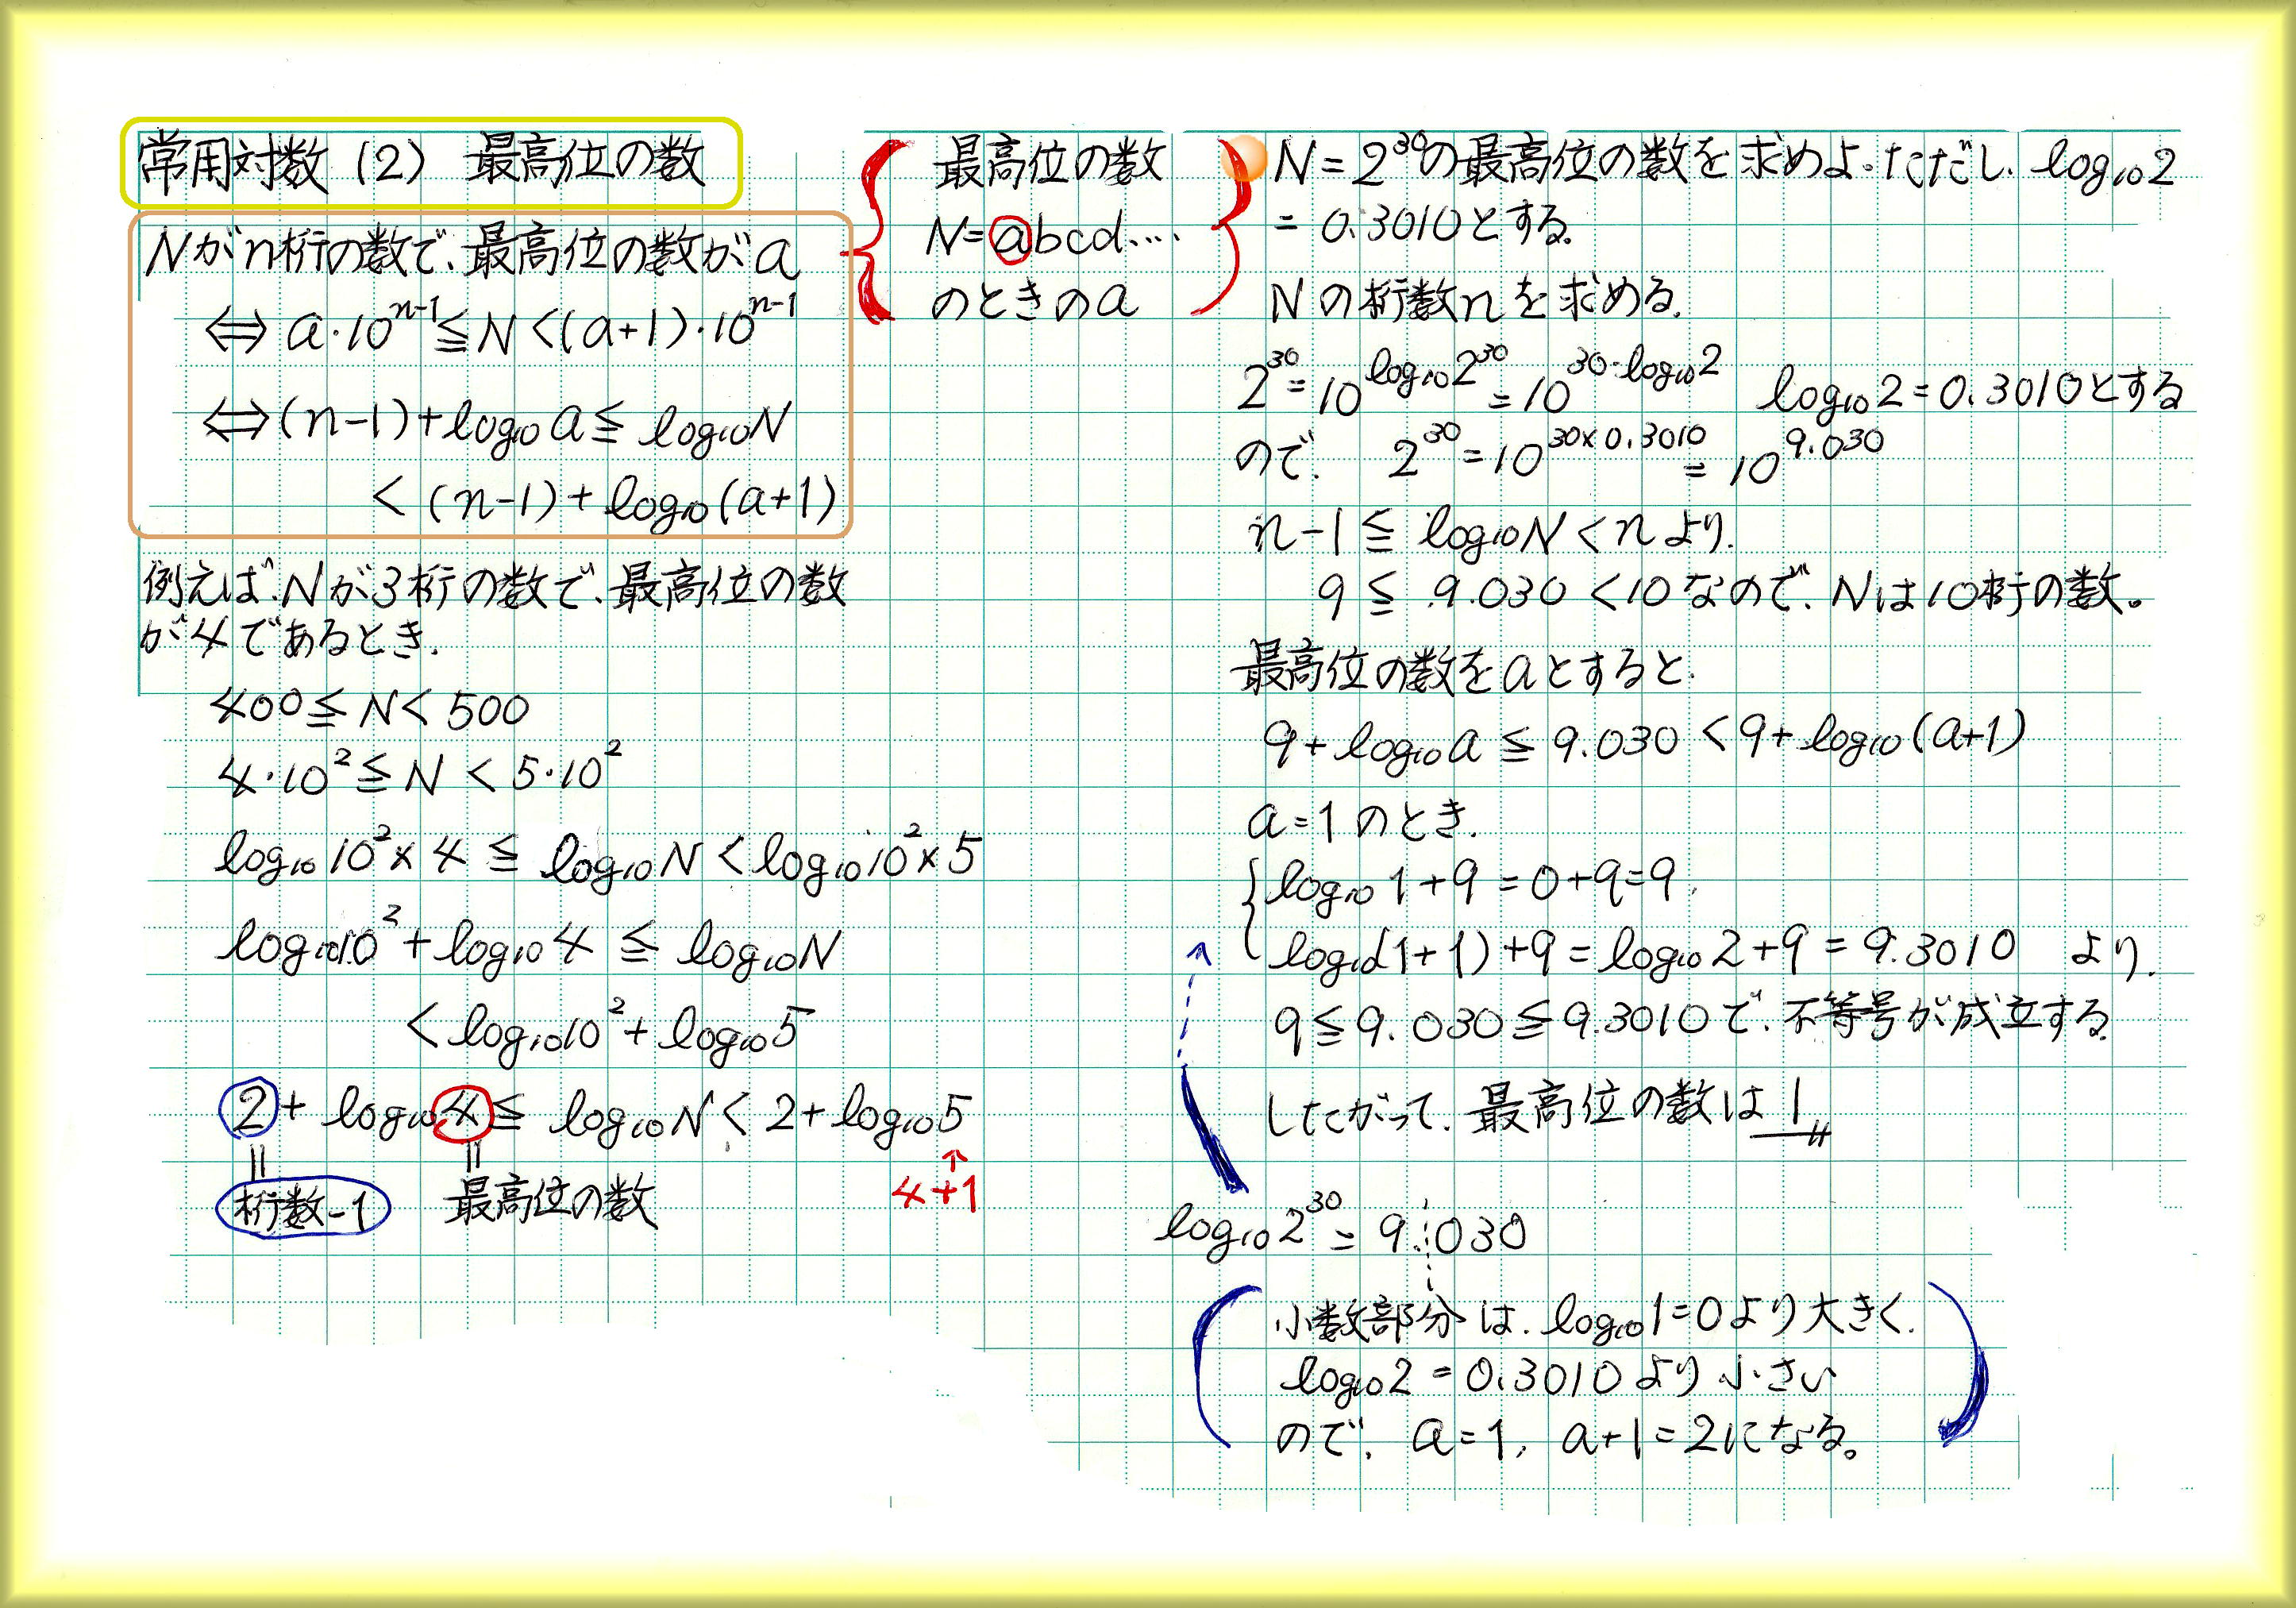 常用対数（2） 最高位の数
Nがn桁の数で、最高位の数がa
⇔ a・10^{n-1} ≦ N < (a+1)・10^{n-1}
⇔ (n-1)+log₁₀a ≦ log₁₀N
< (n-1)+log₁₀(a+1)
最高位の数
N=abcd….
のときのa
例えば、Nが3桁の数で、最高位の数
が4であるとき、
400 ≦ N < 500
4・10² ≦ N < 5・10²
log₁₀10²×4 ≦ log₁₀N < log₁₀10²×5
log₁₀10²+log₁₀4 ≦ log₁₀N
< log₁₀10²+log₁₀5
2+log₁₀4 ≦ log₁₀N < 2+log₁₀5
=
=
↑
桁数-1
最高位の数
4+1
N=2³⁰の最高位の数を求めよ。ただし、log₁₀2
=0.3010とする。
Nの桁数nを求める。
2³⁰=10^{log₁₀2³⁰}=10^{30・log₁₀2} log₁₀2=0.3010とする
ので、 2³⁰=10^{30×0.3010}=10^{9.030}
n-1 ≦ log₁₀N < nより、
9 ≦ 9.030 < 10なので、Nは10桁の数。
最高位の数をaとすると、
9+log₁₀a ≦ 9.030 < 9+log₁₀(a+1)
a=1のとき、
log₁₀1+9=0+9=9,
log₁₀(1+1)+9=log₁₀2+9=9.3010 より、
9 ≦ 9.030 ≦ 9.3010で、不等号が成立する。
したがって、最高位の数は1
log₁₀2³⁰=9.030
小数部分は、log₁₀1=0より大きく、
log₁₀2=0.3010より小さい
ので、a=1, a+1=2になる。